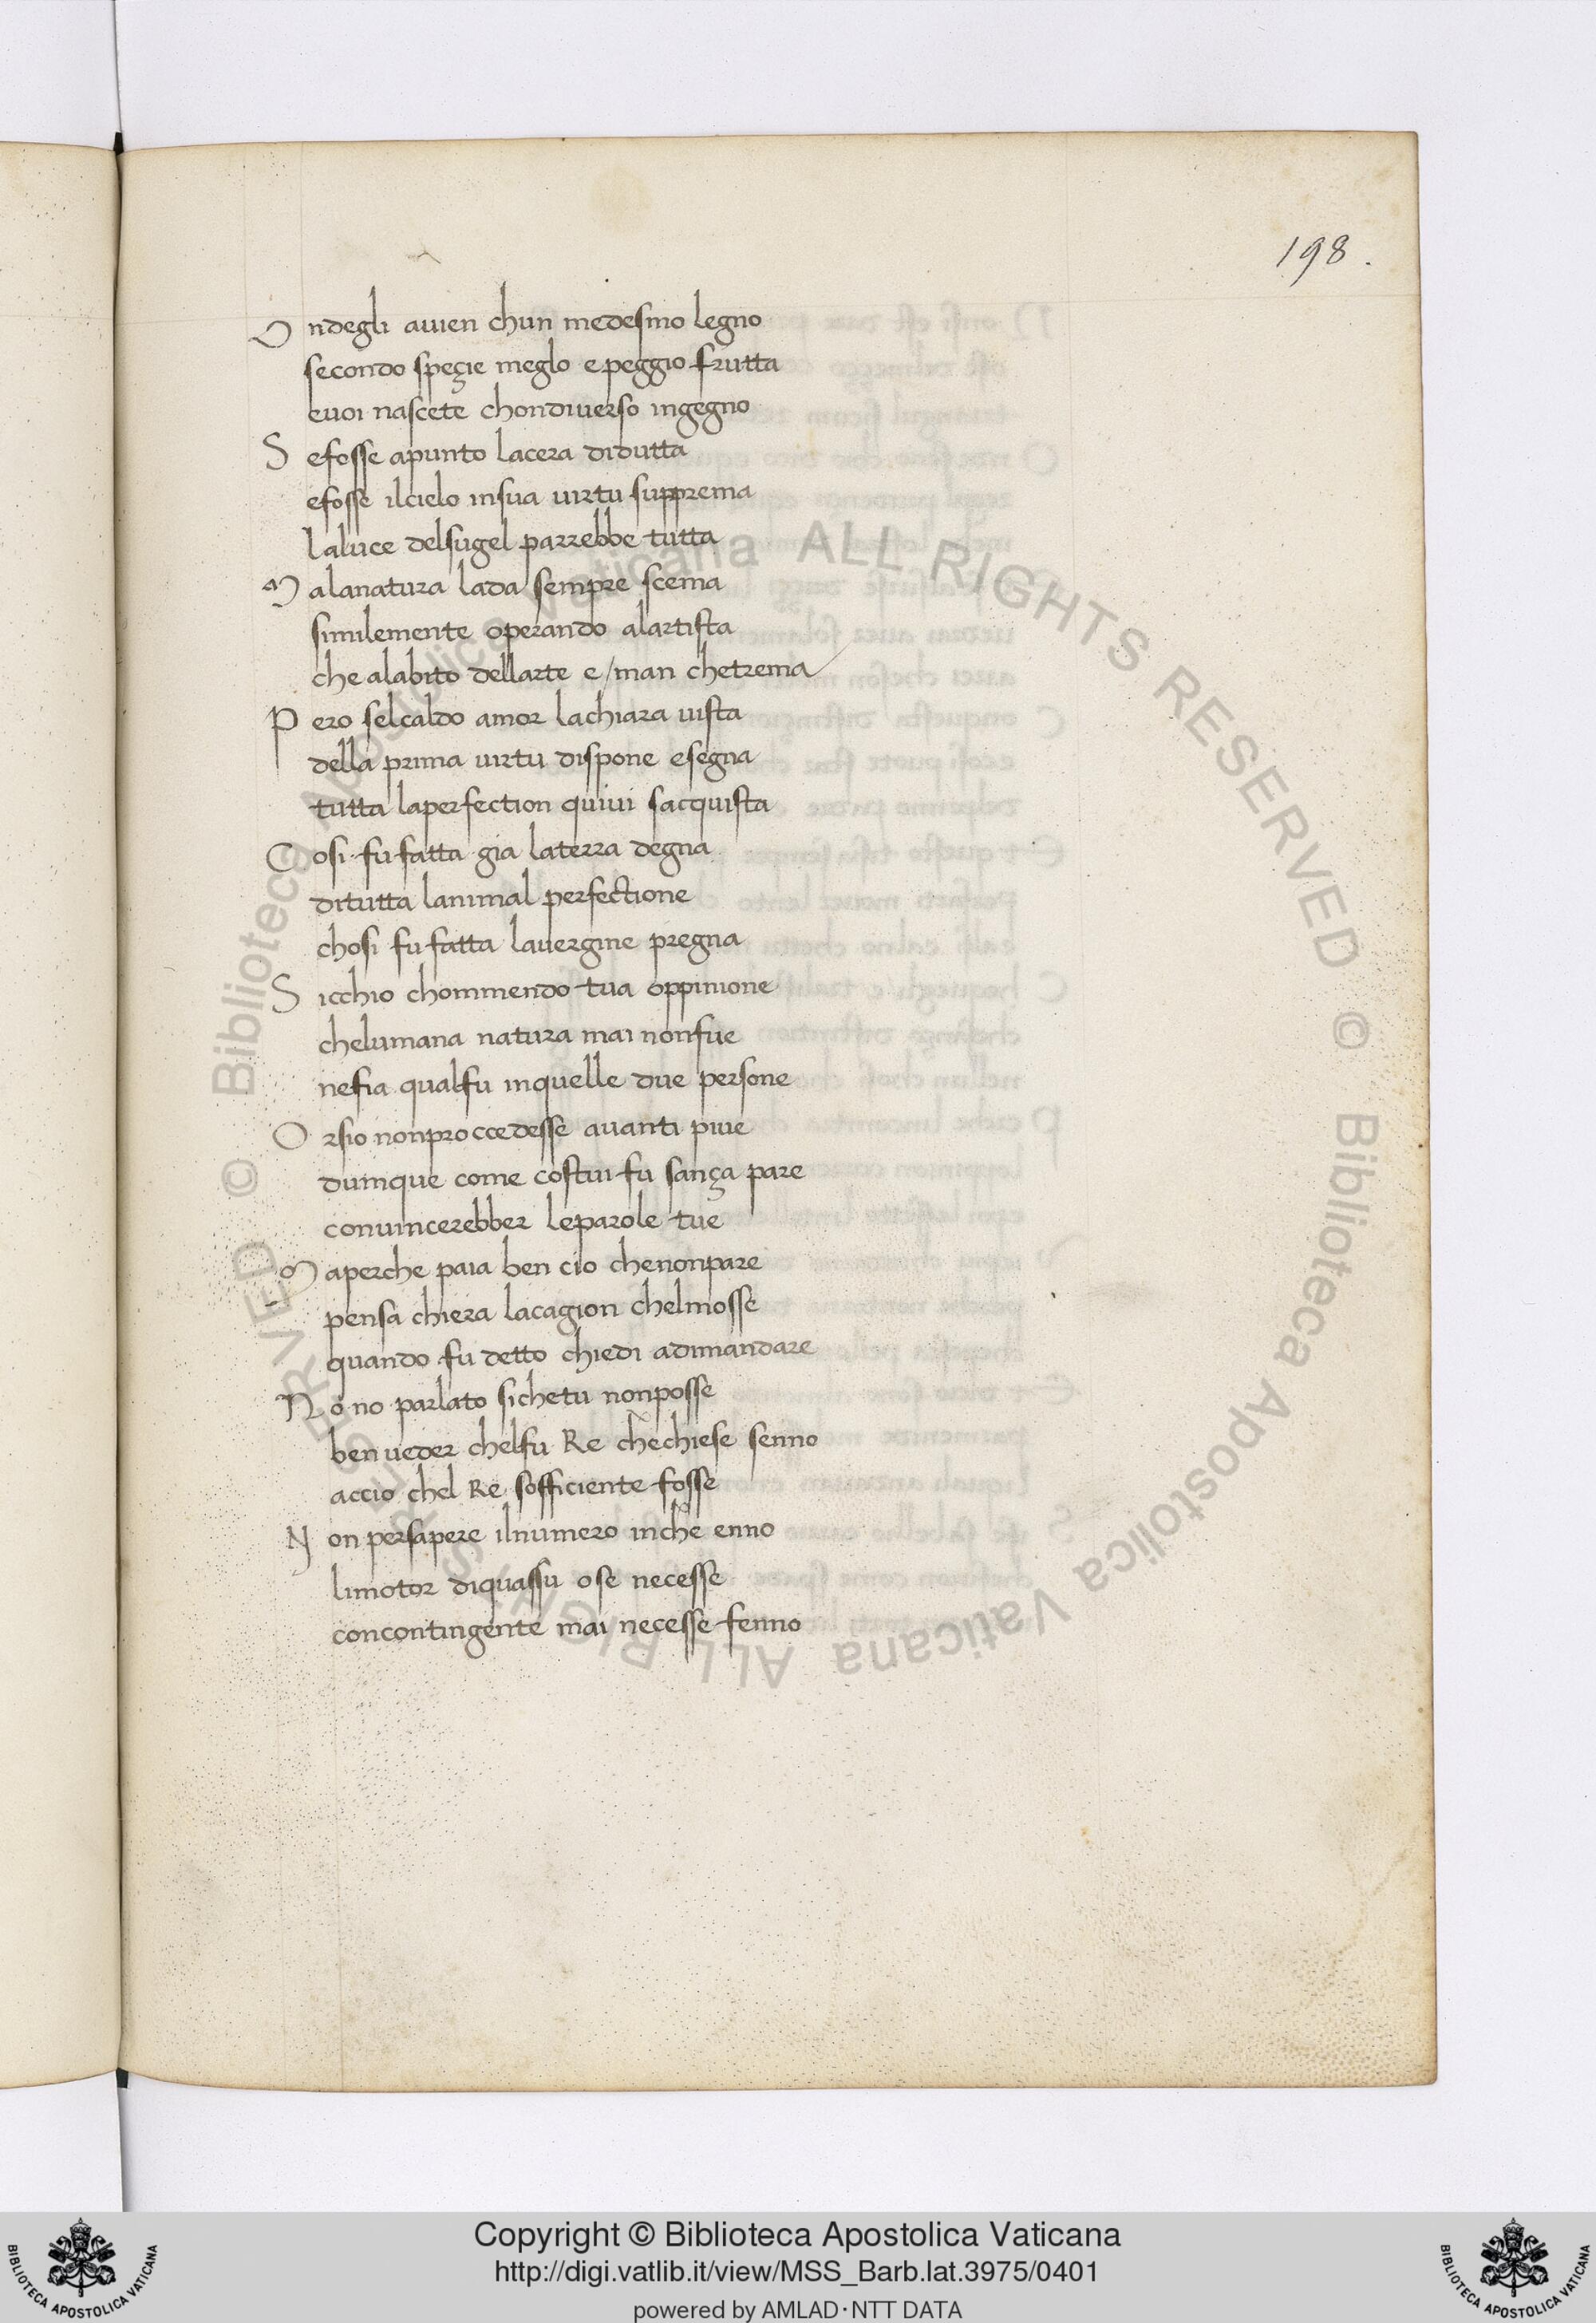 198.
O ndegli auien chun medesmo legno
secondo speçie meglo e peggio frutta
euoi nascete chondiuerso ingegno
S efosse apunto lacera didutta
efosse ilcielo insua uirtu supprema
laluce delsugel parrebbe tutta
M alanatura lada sempre scema
similemente operando alartista
che alabito dellarte e/man chetrema
P ero selcaldo amor lachiara uista
della prima uirtu dispone esegna
tutta laperfection quiui sacquista
C osi fu fatta gia laterra degna
ditutta lanimal perfectione
chosi fu fatta lauergine pregna
S icchio chommendo tua oppinione
chelumana natura mai nonfue
nefia qualfu inquelle due persone
O rsio nonproccedesse auanti piue
dumque come costui fu sança pare
conuincerebber leparole tue
M aperche paia ben cio chenonpare
pensa chiera lacagion chelmosse
quando fu detto chiedi adimandare
N o no parlato sichetu nonposse
ben ueder chelfu Re chechiese senno
accio chel Re sofficiente fosse
N on persapere ilnumero inche enno
limotor diquassu ose necesse
concontingente mai necesse fenno
© Biblioteca Apostolica Vaticana ALL RIGHTS RESERVED © Biblioteca Apostolica Vaticana ALL RIGHTS RESERVED
Copyright © Biblioteca Apostolica Vaticana
http://digi.vatlib.it/view/MSS_Barb.lat.3975/0401
powered by AMLAD·NTT DATA
BIBLIOTECA APOSTOLICA VATICANA
BIBLIOTECA APOSTOLICA VATICANA